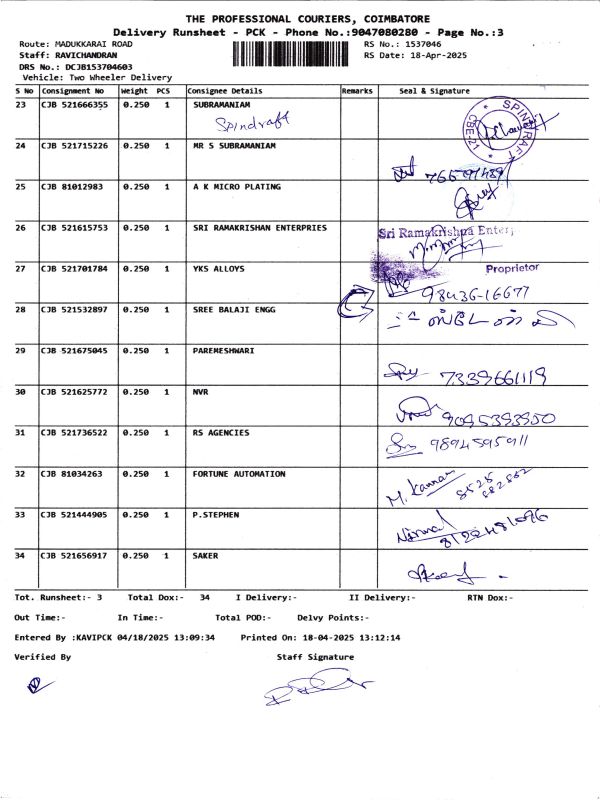 THE PROFESSIONAL COURIERS, COIMBATORE
Delivery Runsheet - PCK - Phone No.:9047080280 - Page No.:3
Route: MADUKKARAI ROAD RS No.: 1537046
Staff: RAVICHANDRAN RS Date: 18-Apr-2025
DRS No.: DCJB153704603
Vehicle: Two Wheeler Delivery
S No Consignment No Weight PCS Consignee Details Remarks Seal & Signature
23 CJB 521666355 0.250 1 SUBRAMANIAM
Spindraft
SPINDRAFT CBE-21
24 CJB 521715226 0.250 1 MR S SUBRAMANIAM
25 CJB 81012983 0.250 1 A K MICRO PLATING
26 CJB 521615753 0.250 1 SRI RAMAKRISHAN ENTERPRIES
Sri Ramakrishna Enter
27 CJB 521701784 0.250 1 YKS ALLOYS
Proprietor
98436-16677
28 CJB 521532897 0.250 1 SREE BALAJI ENGG
29 CJB 521675045 0.250 1 PAREMESHWARI
7339661119
30 CJB 521625772 0.250 1 NVR
9095393950
31 CJB 521736522 0.250 1 RS AGENCIES
9894595911
32 CJB 81034263 0.250 1 FORTUNE AUTOMATION
M. Kannan
33 CJB 521444905 0.250 1 P.STEPHEN
Nirmal
34 CJB 521656917 0.250 1 SAKER
Tot. Runsheet:- 3 Total Dox:- 34 I Delivery:- II Delivery:- RTN Dox:-
Out Time:- In Time:- Total POD:- Delvy Points:-
Entered By :KAVIPCK 04/18/2025 13:09:34 Printed On: 18-04-2025 13:12:14
Verified By Staff Signature